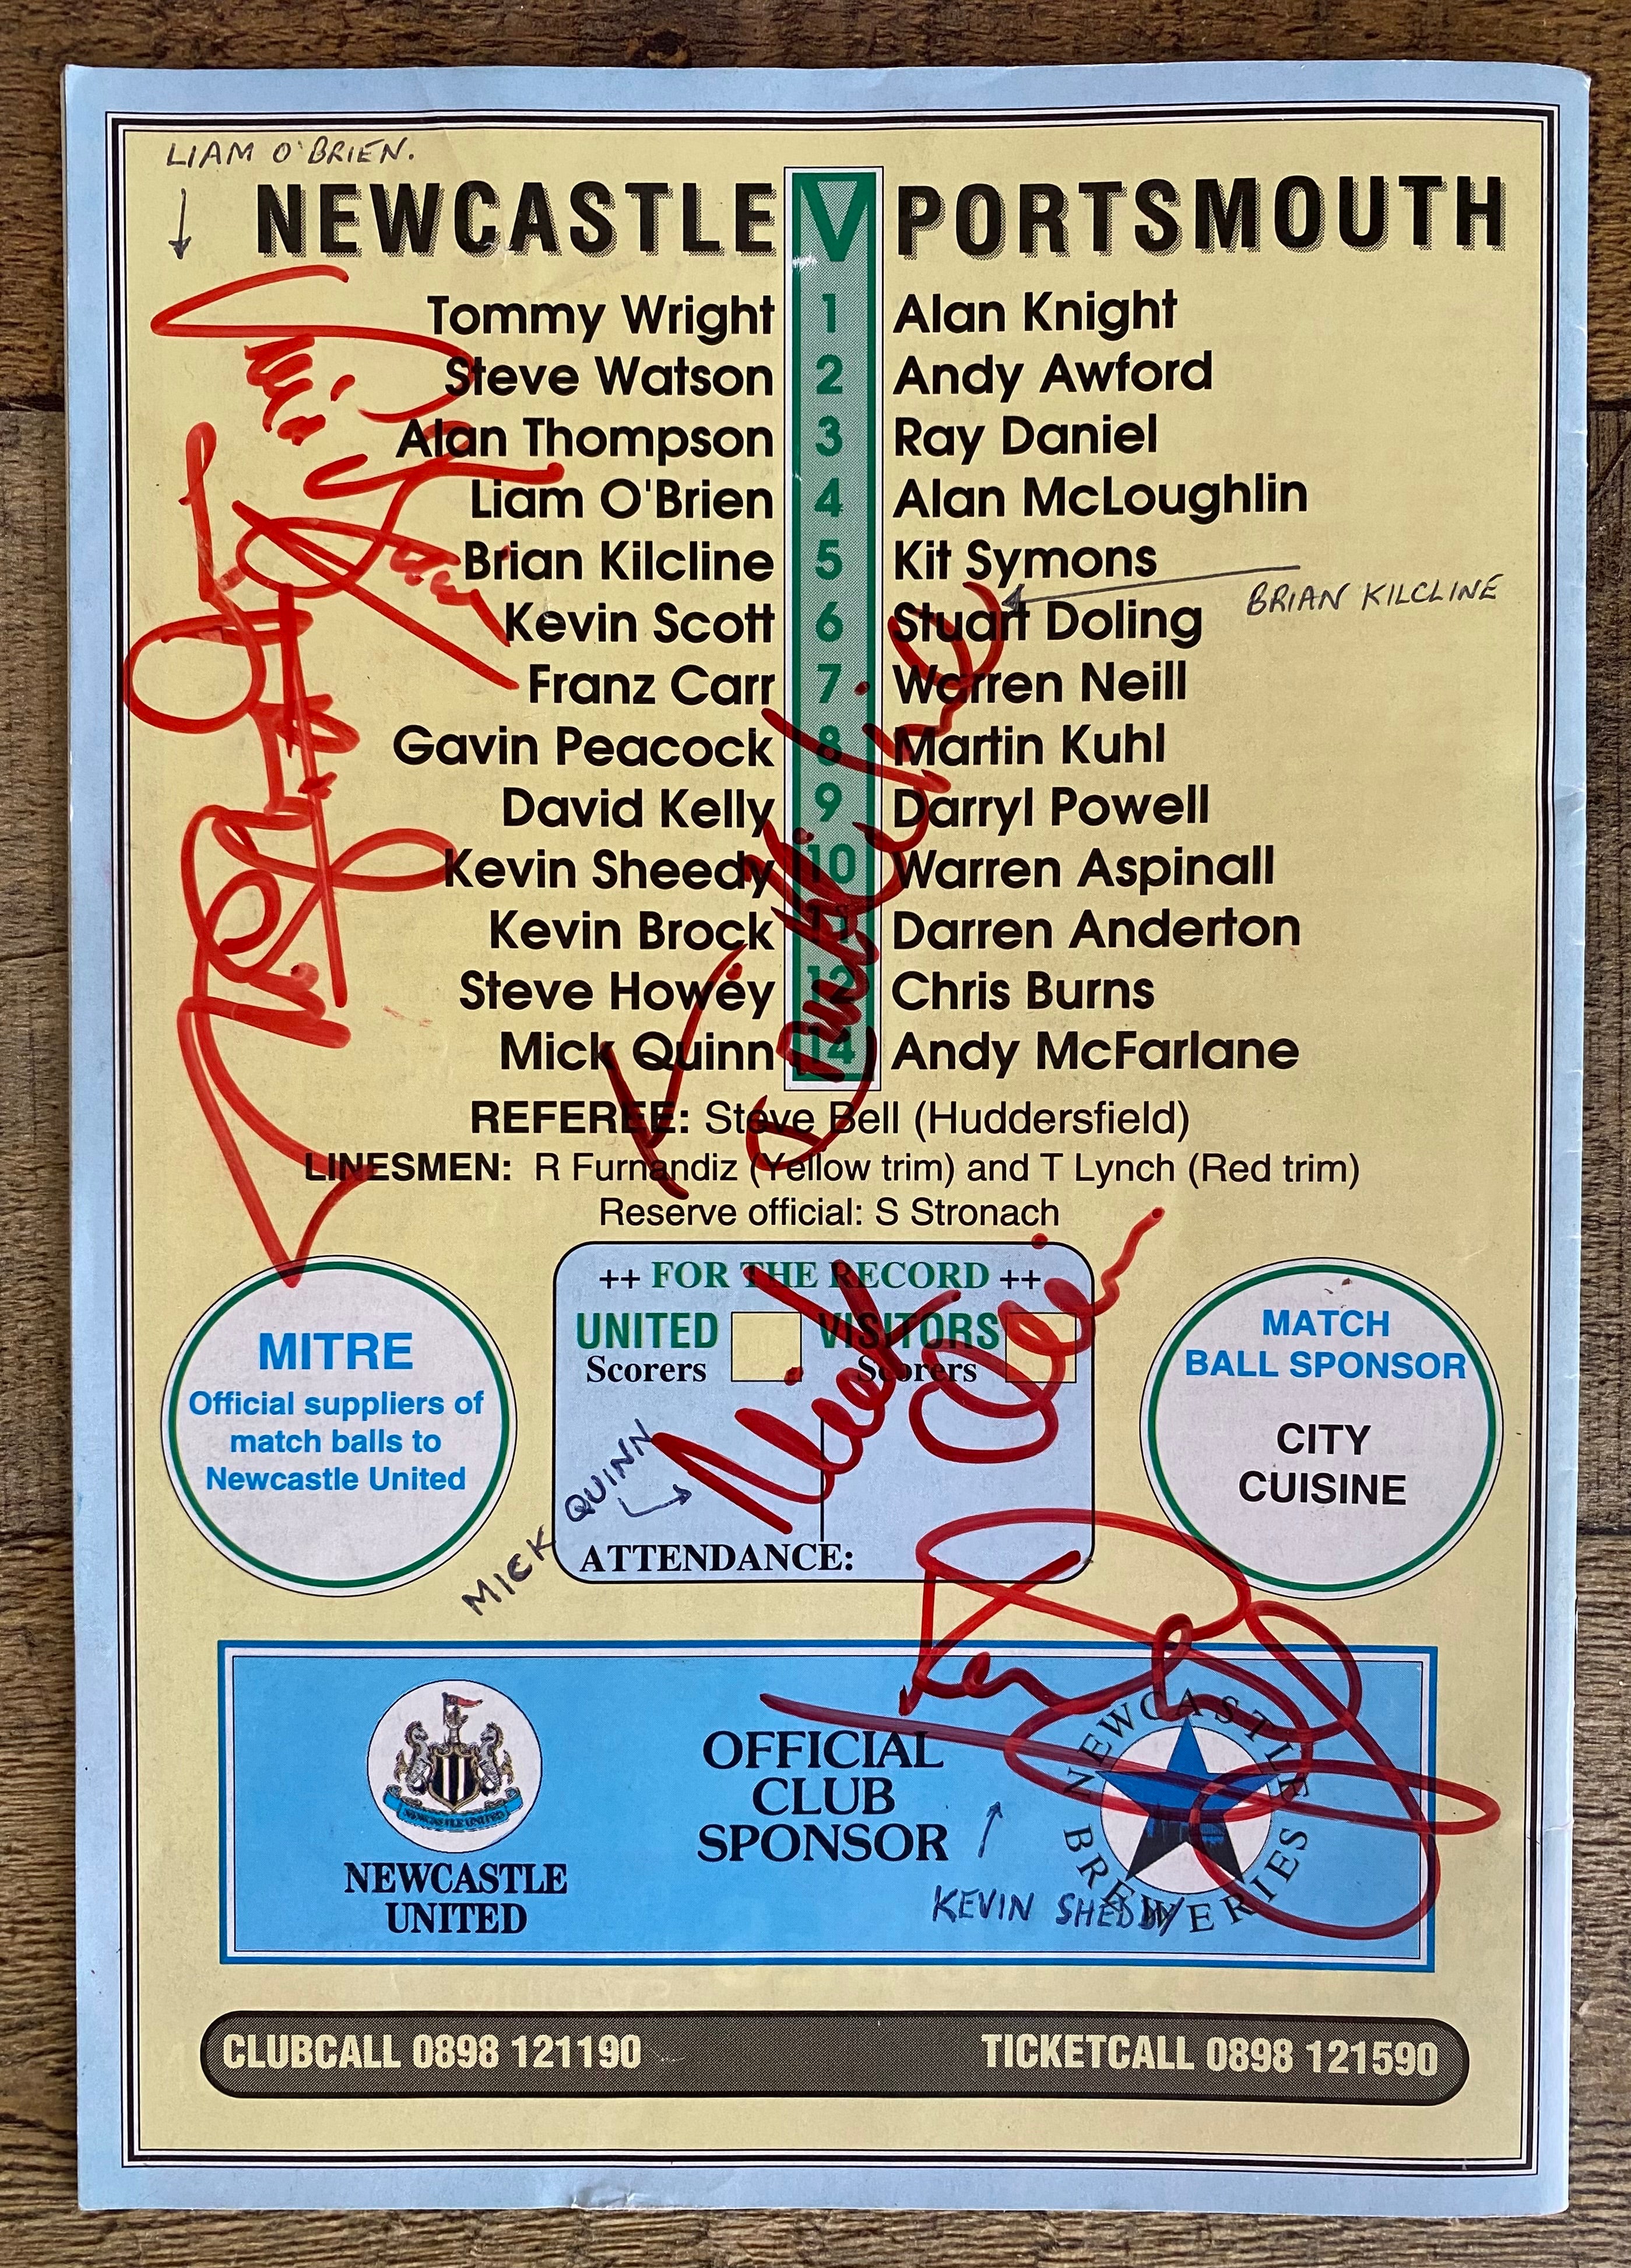 LIAM O'BRIEN.
NEWCASTLE V PORTSMOUTH
Tommy Wright 1 Alan Knight
Steve Watson 2 Andy Awford
Alan Thompson 3 Ray Daniel
Liam O'Brien 4 Alan McLoughlin
Brian Kilcline 5 Kit Symons
BRIAN KILCLINE
Kevin Scott 6 Stuart Doling
Franz Carr 7 Warren Neill
Gavin Peacock 8 Martin Kuhl
David Kelly 9 Darryl Powell
Kevin Sheedy 10 Warren Aspinall
Kevin Brock 11 Darren Anderton
Steve Howey 12 Chris Burns
Mick Quinn 14 Andy McFarlane
REFEREE: Steve Bell (Huddersfield)
LINESMEN: R Furnandiz (Yellow trim) and T Lynch (Red trim)
Reserve official: S Stronach
++ FOR THE RECORD ++
UNITED VISITORS
Scorers Scorers
Mick Quinn
MICK QUINN
ATTENDANCE:
MITRE
Official suppliers of
match balls to
Newcastle United
MATCH
BALL SPONSOR
CITY
CUISINE
NEWCASTLE UNITED
NEWCASTLE
UNITED
OFFICIAL
CLUB
SPONSOR
NEWCASTLE
BREWERIES
KEVIN SHEDDY
CLUBCALL 0898 121190
TICKETCALL 0898 121590